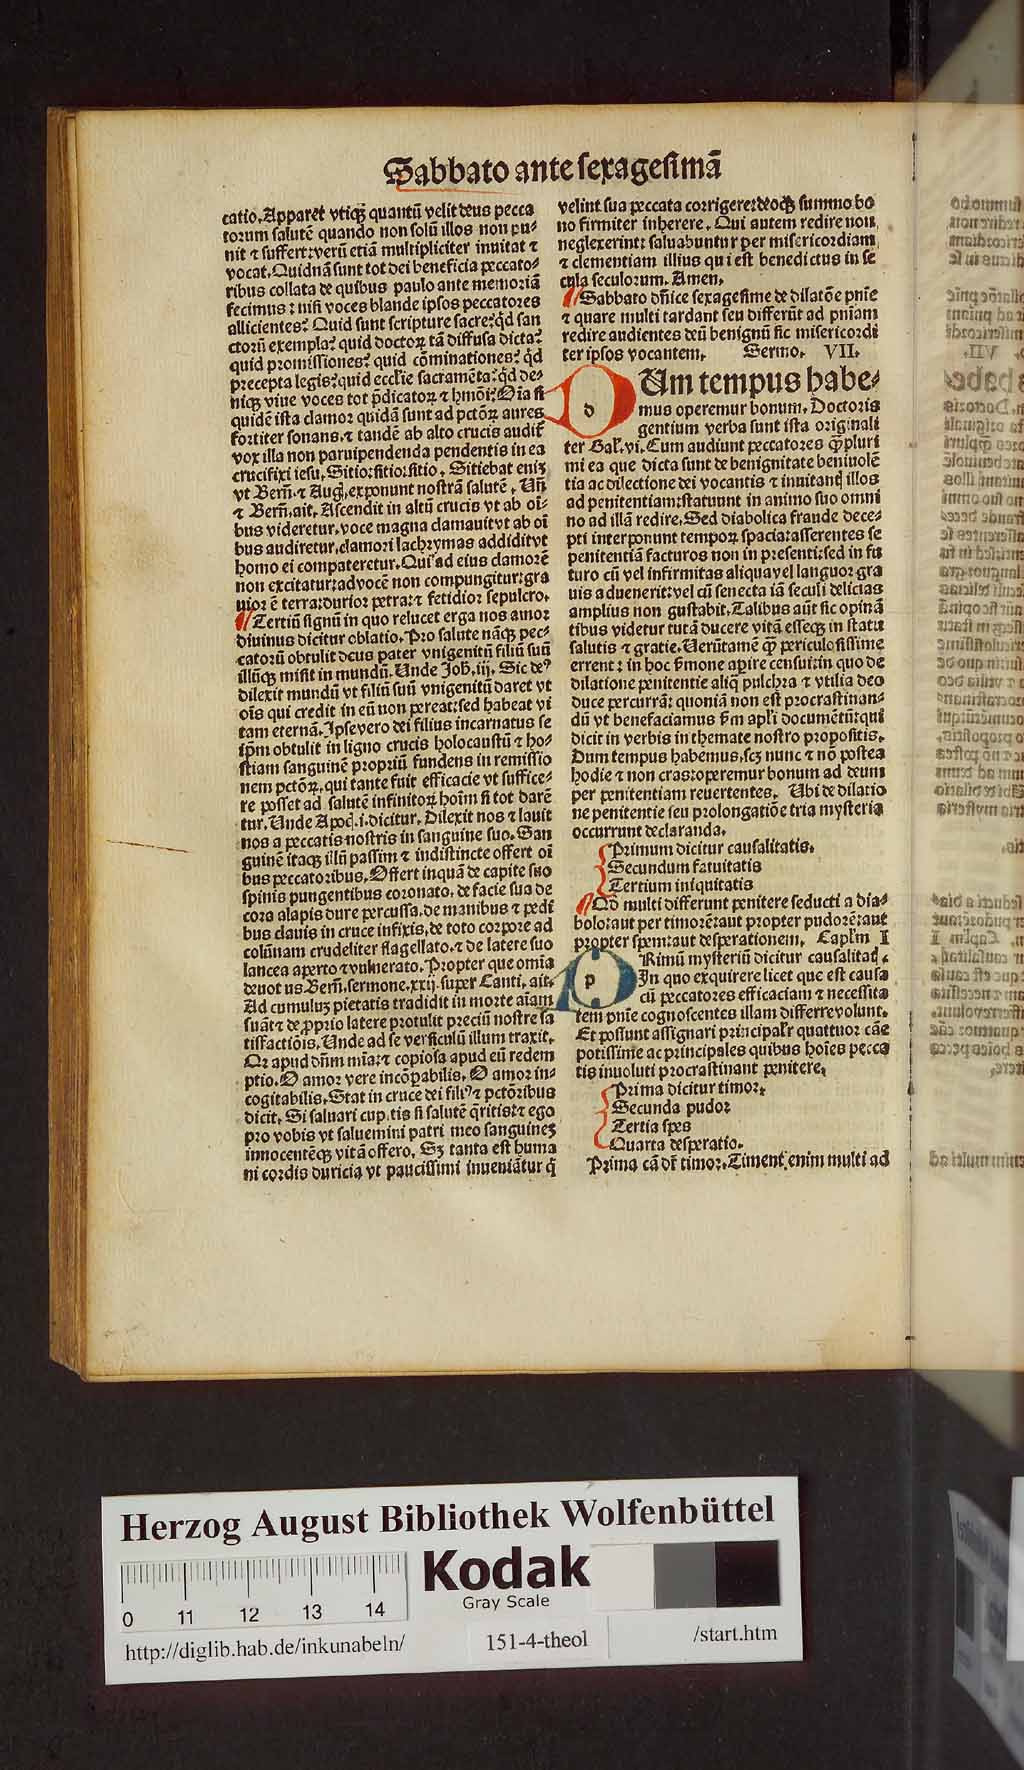 Sabbato ante sexagesimā
catio. Apparet vtiqꝫ quantū velit deus pecca
torum salutē quando non solū illos non pu-
nit ⁊ suffert: verū etiā multipliciter inuitat ⁊
vocat. Quidnā sunt tot dei beneficia peccato-
ribus collata de quibus paulo ante memoriā
fecimus: nisi voces blande ipsos peccatores
allicientes? Quid sunt scripture sacre? qd san
ctorū exempla? quid doctoꝝ tā diffusa dicta?
quid promissiones? quid cōminationes? qd
precepta legis? quid eccl'ie sacramēta? qd de-
niqꝫ viue voces tot p̄dicatoꝝ ⁊ hmōi? Oīa si
quidē ista clamor quidā sunt ad pctōꝝ aures
fortiter sonans. ⁊ tandē ab alto crucis audit̄
vox illa non paruipendenda pendentis in ea
crucifixi iesu. Sitio: sitio: sitio. Sitiebat enīꝫ
vt Bern̄. ⁊ Auḡ. exponunt nostrā salutē. Un̄
⁊ Bern̄. ait. Ascendit in altū crucis vt ab oī-
bus videretur. voce magna clamauit vt ab oī
bus audiretur. clamori lachrymas addidit vt
homo ei compateretur. Qui ad eius clamorē
non excitatur: ad vocē non compungitur: gra
uior ē terra: durior petra: ⁊ fetidior sepulcro.
Tertiū signū in quo relucet erga nos amor
diuinus dicitur oblatio. Pro salute nāqꝫ pec-
catorū obtulit deus pater vnigenitū filiū suū
illūqꝫ misit in mundū. Unde Joh. iij. Sic de⁹
dilexit mundū vt filiū suū vnigenitū daret vt
oīs qui credit in eū non pereat: sed habeat vi
tam eternā. Ipse vero dei filius incarnatus se
ip̄m obtulit in ligno crucis holocaustū ⁊ ho-
stiam sanguinē propriū fundens in remissio
nem pctōꝝ. qui tante fuit efficacie vt suffice-
re posset ad salutē infinitoꝝ hoīm si tot darē
tur. Unde Apoc̄. i. dicitur. Dilexit nos ⁊ lauit
nos a peccatis nostris in sanguine suo. San
guinē itaqꝫ illū passim ⁊ indistincte offert oī
bus peccatoribus. Offert inquā de capite suo
spinis pungentibus coronato. de facie sua de
cora alapis dure percussa. de manibus ⁊ pedi
bus clauis in cruce infixis. de toto corpore ad
colūnam crudeliter flagellato. ⁊ de latere suo
lancea aperto ⁊ vulnerato. Propter que omīa
deuot us Bern̄. sermone. xxij. super Canti. ait.
Ad cumuluꝫ pietatis tradidit in morte aīam
suā: ⁊ de ꝓprio latere protulit preciū nostre sa
tisfactiōis. Unde ad se versiculū illum traxit.
Qr apud dn̄m mīa: ⁊ copiosa apud eū redem
ptio. O amor vere incōpabilis. O amor in-
cogitabilis. Stat in cruce dei fili⁹ ⁊ pctōribus
dicit. Si saluari cupitis si salutē q̄ritis: ⁊ ego
pro vobis vt saluemini patri meo sanguineꝫ
innocentēqꝫ vitā offero. Sꝫ tanta est huma
ni cordis duricia vt paucissimi inueniātur q̄
velint sua peccata corrigere: deoqꝫ summo bo
no firmiter inherere. Qui autem redire non
neglexerint: saluabuntur per misericordiam
⁊ clementiam illius qui est benedictus in se
cula seculorum. Amen.
Sabbato dn̄ice sexagesime de dilatōe pnīe
⁊ quare multi tardant seu differūt ad pnīam
redire audientes deū benignū sic misericordi
ter ipsos vocantem. Sermo. VII.
d Um tempus habe-
mus operemur bonum. Doctoris
gentium verba sunt ista originali
ter Gal'. vi. Cum audiunt peccatores q̄pluri
mi ea que dicta sunt de benignitate beniuolē
tia ac dilectione dei vocantis ⁊ inuitantꝫ illos
ad penitentiam: statuunt in animo suo omni
no ad illā redire. Sed diabolica fraude dece-
pti interponunt tempoꝝ spacia: asserentes se
penitentiā facturos non in presenti: sed in fu
turo cū vel infirmitas aliqua vel languor gra
uis aduenerit: vel cū senecta iā seculi delicias
amplius non gustabit. Talibus aūt sic opinā
tibus videtur tutā ducere vitā esseqꝫ in statu
salutis ⁊ gratie. Uerūtamē q̄ periculosissime
errent: in hoc s̄mone apire censui: in quo de
dilatione penitentie aliq̄ pulchra ⁊ vtilia deo
duce percurrā: quoniā non est procrastinan-
dū vt benefaciamus s̄m apl'i documētū: qui
dicit in verbis in themate nostro propositis.
Dum tempus habemus. scꝫ nunc ⁊ nō postea
hodie ⁊ non cras: operemur bonum ad deum
per penitentiam reuertentes. Ubi de dilatio
ne penitentie seu prolongatiōe tria mysteria
occurrunt declaranda.
Primum dicitur causalitatis.
Secundum fatuitatis
Tertium iniquitatis
Qd multi differunt penitere seducti a dia-
bolo: aut per timorē: aut propter pudorē: aut
propter spem: aut desperationem. Capl'm I
p Rimū mysteriū dicitur causalitatꝭ.
In quo exquirere licet que est causa
cū peccatores efficaciam ⁊ necessita
tem pnīe cognoscentes illam differre volunt.
Et possunt assignari principal'r quattuor cāe
potissime ac principales quibus hoīes pecca
tis inuoluti procrastinant penitere.
Prima dicitur timor.
Secunda pudor
Tertia spes
Quarta desperatio.
Prima cā dr̄ timor. Timent enim multi ad
Herzog August Bibliothek Wolfenbüttel
Kodak
Gray Scale
0 11 12 13 14
http://diglib.hab.de/inkunabeln/ 151-4-theol /start.htm